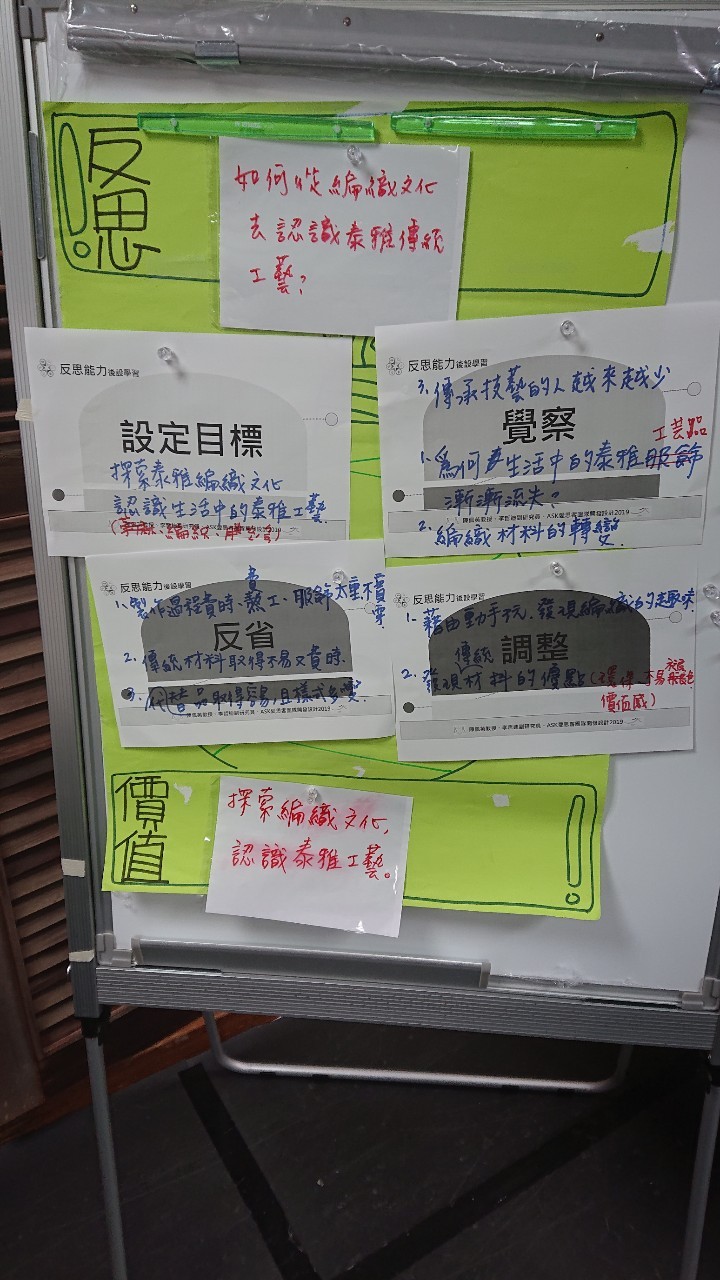 反思
如何從編織文化
去認識泰雅傳統
工藝?
反思能力後設學習
設定目標
探索泰雅編織文化
認識生活中的泰雅工藝
反思能力後設學習
3. 傳承技藝的人越來越少
覺察
工芸品
1. 為何生活中的泰雅服飾
漸漸流失?
2. 編織材料的轉變
反思能力後設學習
1. 製作過程費時、費工、服飾太重不實穿
反省
2. 傳統材料取得不易又費時
3. 代替品取得容易,且樣式多變.
反思能力後設學習
1. 藉由動手玩.發現編織的趣味
調整
2. 發現傳統材料的優點(環保、不易褪色
價值感)
價值
探索編織文化,
認識泰雅工藝。